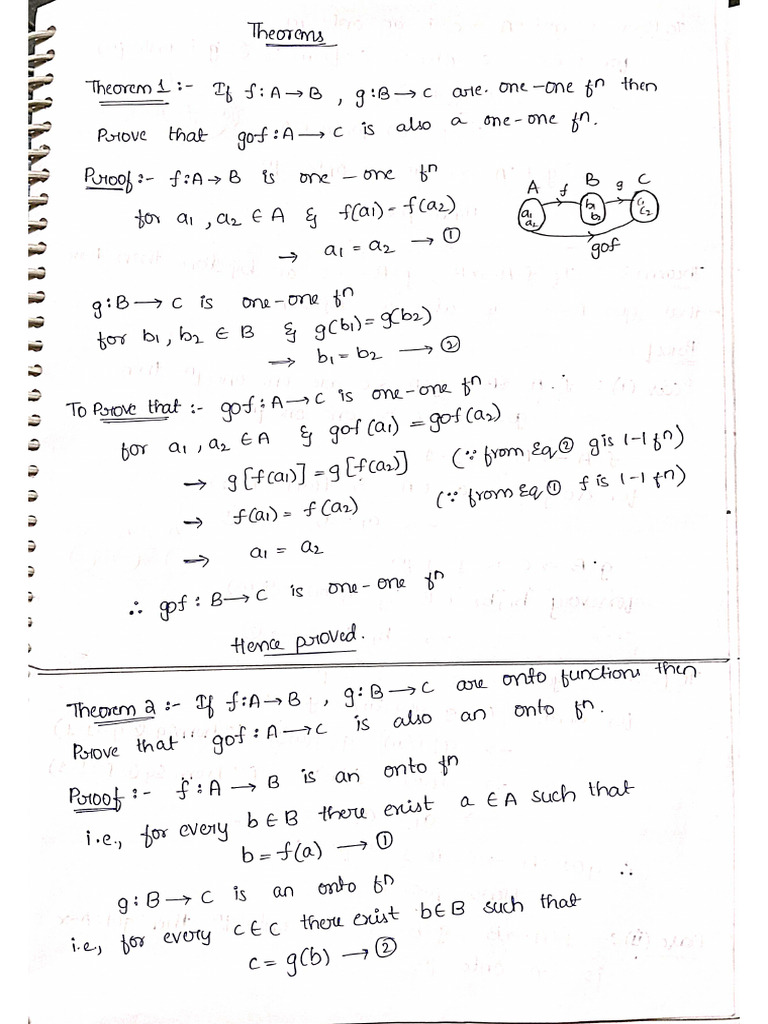 Theorems
Theorem 1 :- If f : A → B , g : B → C are one-one fⁿ then
Prove that gof : A → C is also a one-one fⁿ.
Proof :- f : A → B is one-one fⁿ
for a₁ , a₂ ∈ A & f(a₁) - f(a₂)
→ a₁ = a₂ → ①
A f B g C
a₁ a₂ b₁ b₂ c₁ c₂
gof
g : B → C is one-one fⁿ
for b₁ , b₂ ∈ B & g(b₁) = g(b₂)
→ b₁ = b₂ → ②
To Prove that :- gof : A → C is one-one fⁿ
for a₁ , a₂ ∈ A & gof(a₁) = gof(a₂)
→ g[f(a₁)] = g[f(a₂)] (∵ from Eq ② g is 1-1 fⁿ)
→ f(a₁) = f(a₂) (∵ from Eq ① f is 1-1 fⁿ)
→ a₁ = a₂
∴ gof : B → C is one-one fⁿ
Hence proved.
Theorem 2 :- If f : A → B , g : B → C are onto functions then
Prove that gof : A → C is also an onto fⁿ.
Proof :- f : A → B is an onto fⁿ
i.e., for every b ∈ B there exist a ∈ A such that
b = f(a) → ①
g : B → C is an onto fⁿ
i.e., for every c ∈ C there exist b ∈ B such that
c = g(b) → ②